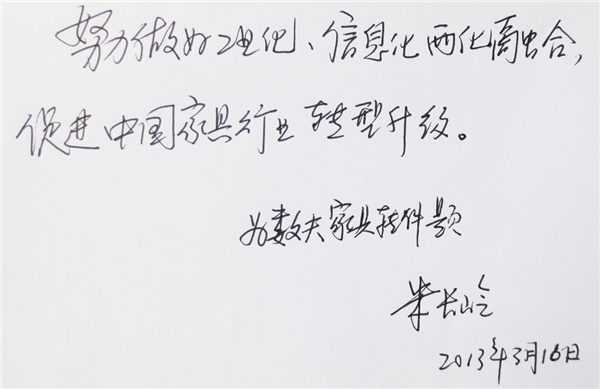 努力做好工业化、信息化两化融合,
促进中国家具行业转型升级。
为数夫家具软件题
朱长岭
2013年3月16日